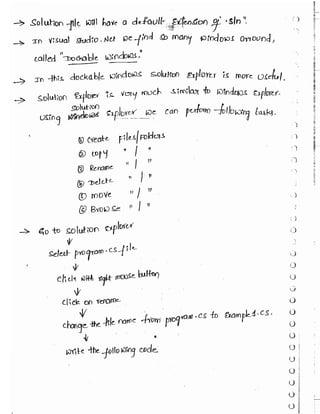 → Solution -file will have a default extension of ".sln".
→ In visual studio .Net we -find so many windows around,
called "Dockable windows."
→ In -this dockable windows solution Explorer is more useful.
→ Solution Explorer is very much similar to windows Explorer.
Using solution Explorer we can perform -following tasks.
① Create Files/Folders
② copy " / "
③ Rename " / "
④ Delete " / "
⑤ move " / "
⑥ Browse " / "
→ Go to solution explorer
↓
Select program.cs -file
↓
click with right mouse button
↓
click on rename
↓
change the file name -from program.cs to Example1.cs.
↓
write the -following code.